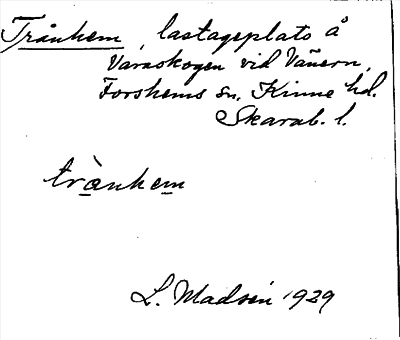 Trånhem, lastageplats å
Varaskogen vid Vänern,
Forshems sn. Kinne hd.
Skarab. l.
trànhem
L. Madsén 1929